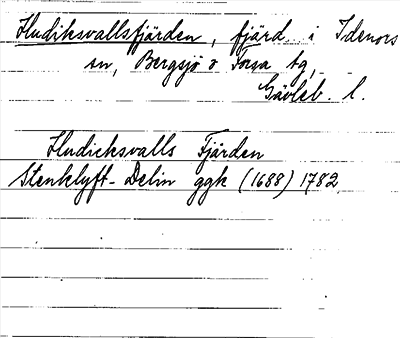 Hudiksvallsfjärden, fjärd i Idenors
sn, Bergsjö o Forsa tg,
Gävleb. l.
Hudicksvalls Fjärden
Stenklyft-Delin ggk (1688) 1782